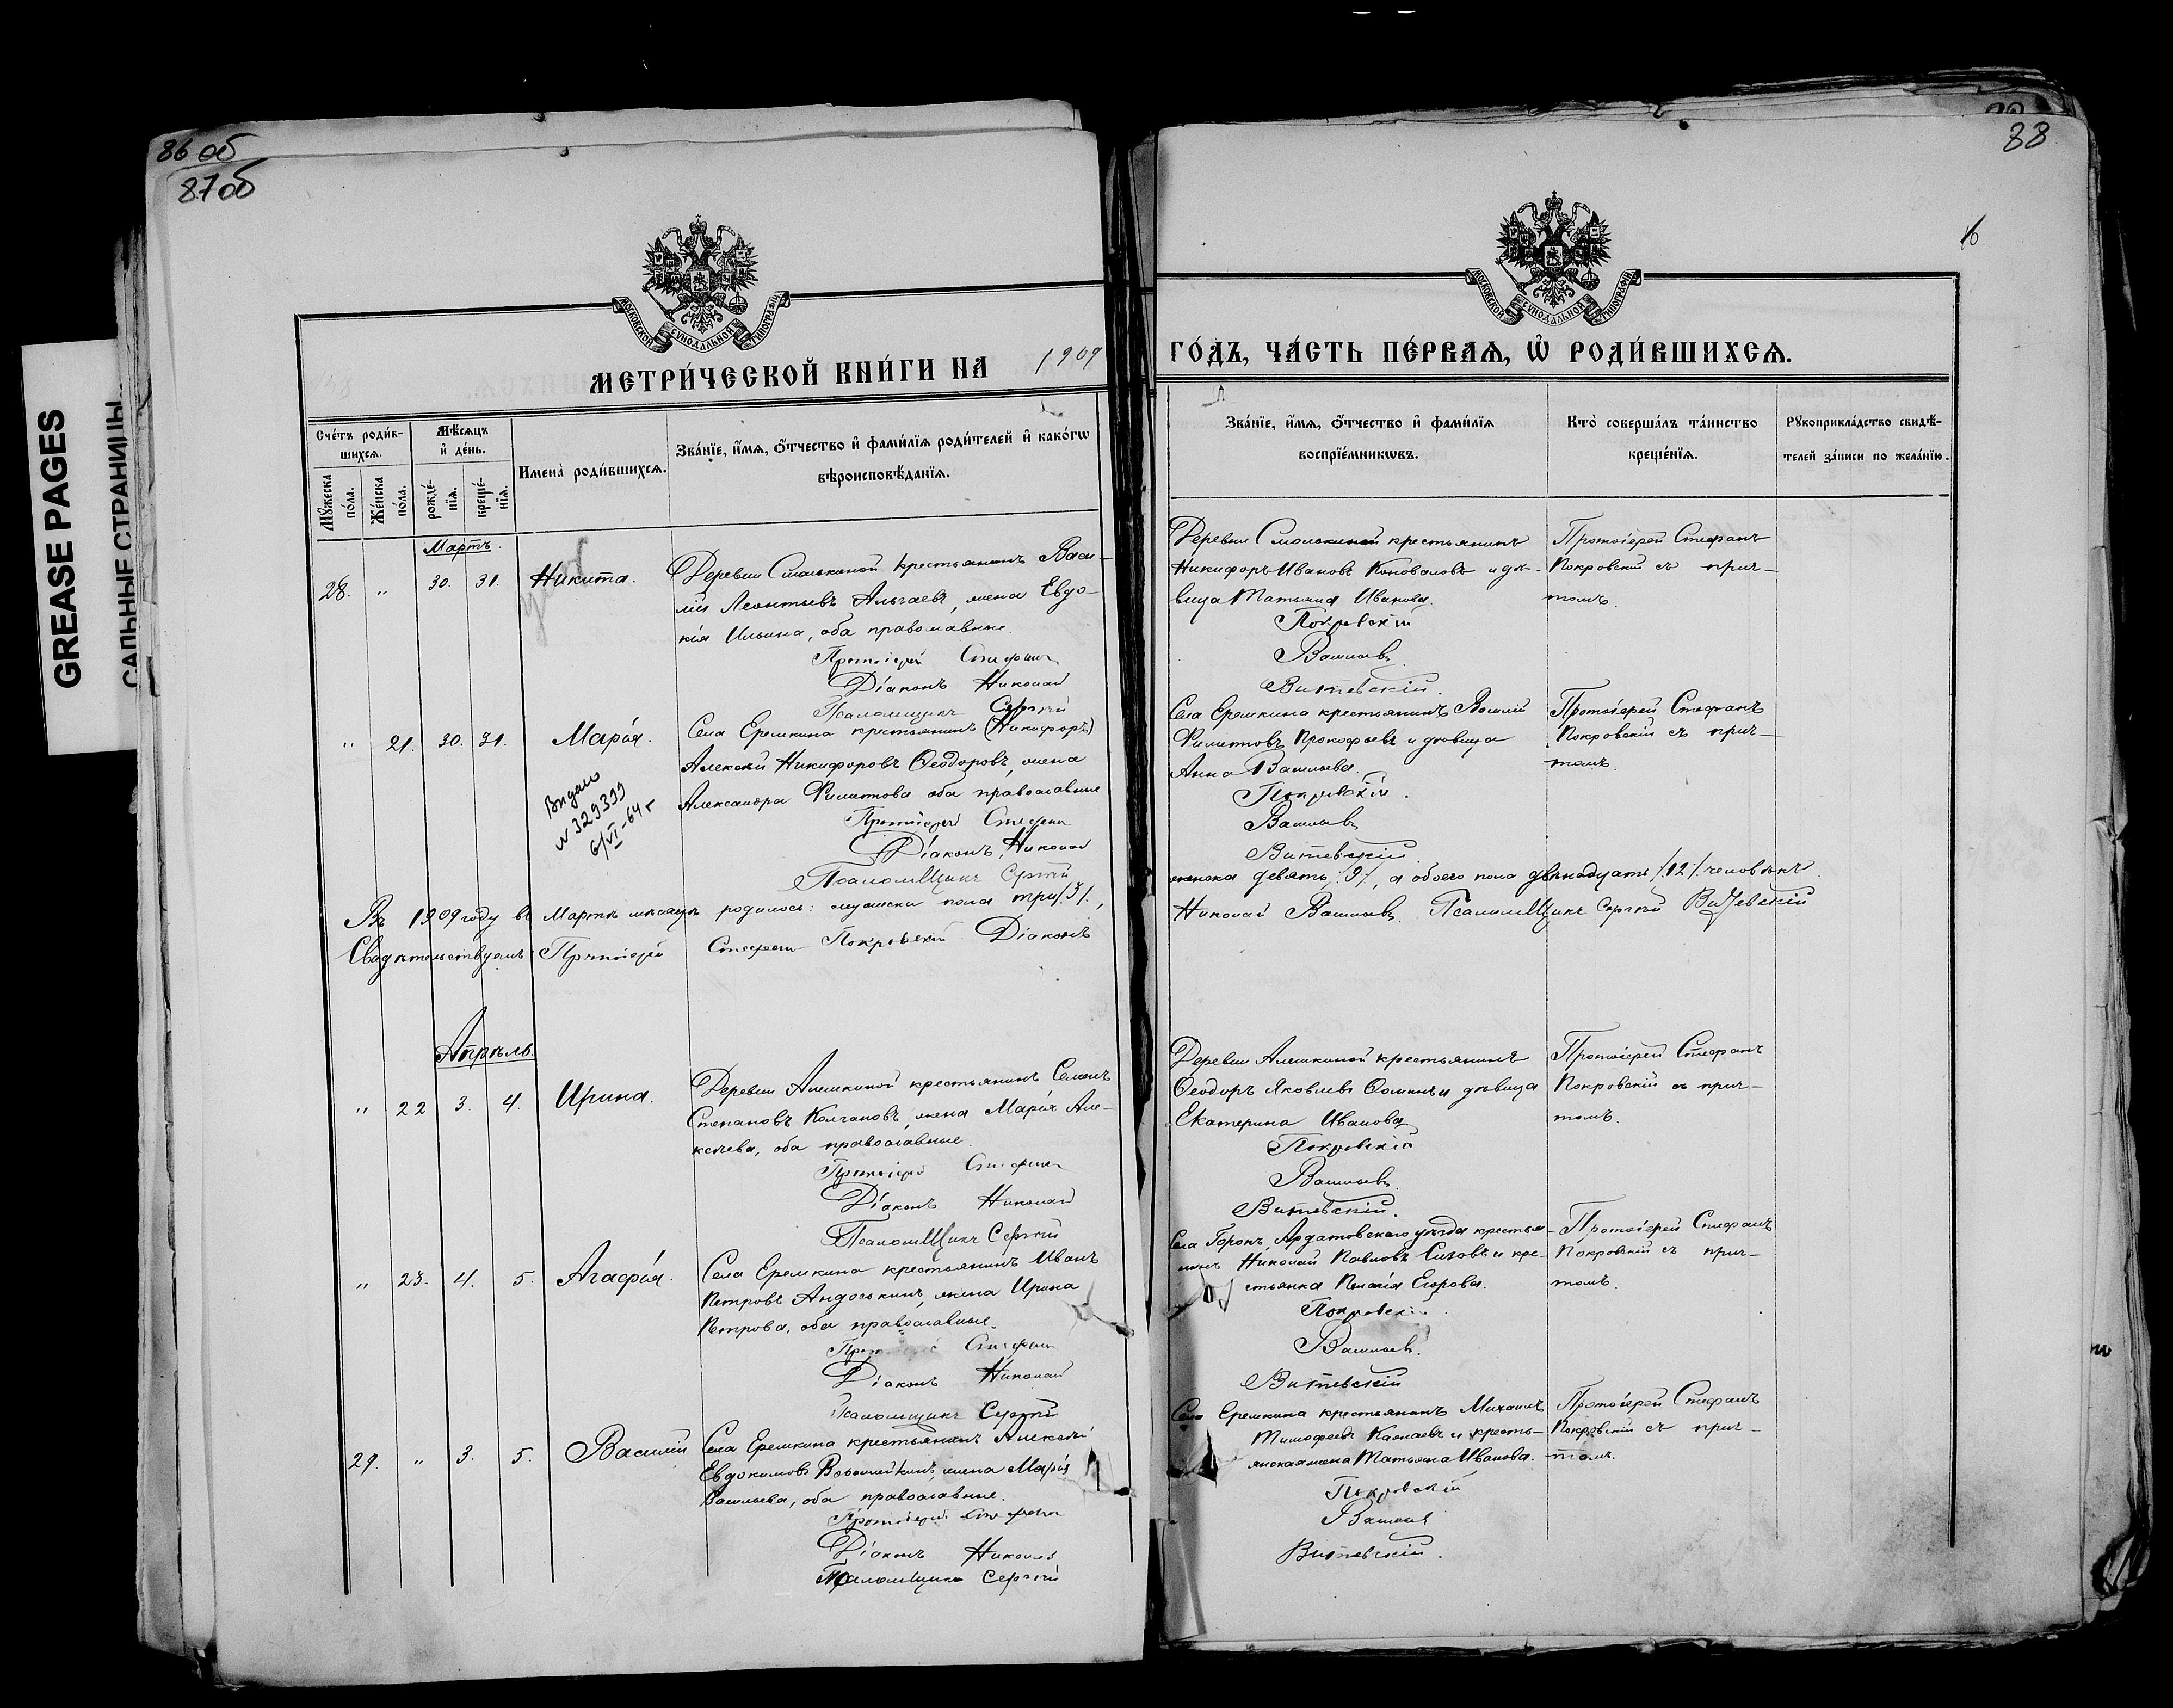 86 об
87 об
88
16
GREASE PAGES
САЛЬНЫЕ СТРАНИЦЫ
МОСКОВСКОЙ СѴНОДАЛЬНОЙ ТИПОГРАФІИ
МОСКОВСКОЙ СѴНОДАЛЬНОЙ ТИПОГРАФІИ
МЕТРИ́ЧЕСКОЙ КНИ́ГИ НА 1909
ГО́ДЪ, ЧА́СТЬ ПЕ́РВАѦ, Ѽ РОДИ́ВШИХСѦ.
Сче́тъ роди́в-
шихсѧ.
Мѣ́сѧцъ
и҆ де́нь.
Мꙋ́жеска
по́ла.
Же́нска
по́ла.
рожде́-
нїѧ.
креще́-
нїѧ.
Имена̀ роди́вшихсѧ.
Зва́нїе, и҆́мѧ, ѻ҆́тчество и҆ фами́лїѧ роди́телей и҆ како́гѡ
вѣроисповѣ́данїѧ.
Зва́нїе, и҆́мѧ, ѻ҆́тчество и҆ фами́лїѧ
воспрїе́мникѡвъ.
Кто̀ соверша́лъ та́инство
креще́нїѧ.
Рꙋкоприкла́дство свидѣ́-
телей за́писи по жела́нїю.
Мартъ.
28. " 30. 31. Никита.
Деревни Смолькиной крестьянинъ Васи-
лій Леонтьевъ Альгаевъ, жена Евдо-
кія Ильина, оба православные.
Протоіерей Стефанъ
Діаконъ Николай
Псаломщикъ Сергій
Деревни Смолькиной крестьянинъ
Никифоръ Ивановъ Коноваловъ и дѣ-
вица Татьяна Иванова.
Покровскій
Васильевъ
Витевскій.
Протоіерей Стефанъ
Покровскій съ прич-
томъ.
" 21. 30. 31. Марія.
Села Еремкина крестьянинъ (Никифоръ)
Алексѣй Никифоровъ Ѳеодоровъ, жена
Александра Филиппова оба православные
Протоіерей Стефанъ
Діаконъ Николай
Псаломщикъ Сергій
Выдано
№ 329399
6/VI-64 г
Села Еремкина крестьянинъ Василій
Филипповъ Прокофьевъ и дѣвица
Анна Васильева.
Покровскій.
Васильевъ
Витевскій
Протоіерей Стефанъ
Покровскій съ прич-
томъ.
Въ 1909 году въ Мартѣ мѣсяцѣ родилось: мужеска пола три /3/,
женска девять /9/, а обоего пола двѣнадцать /12/ человѣкъ.
Свидѣтельствуемъ: Протоіерей Стефанъ Покровскій Діаконъ
Николай Васильевъ. Псаломщикъ Сергій Витевскій
Апрѣль.
" 22 3. 4. Ирина.
Деревни Алешкиной крестьянинъ Семенъ
Степановъ Колчановъ, жена Марія Але-
ксѣева, оба православные.
Протоіерей Стефанъ
Діаконъ Николай
Псаломщикъ Сергій
Деревни Алешкиной крестьянинъ
Ѳеодоръ Яковлевъ Ѳоминъ и дѣвица
Екатерина Иванова
Покровскій
Васильевъ.
Витевскій.
Протоіерей Стефанъ
Покровскій съ прич-
томъ.
" 23. 4. 5. Агафія.
Села Еремкина крестьянинъ Иванъ
Петровъ Андоськинъ, жена Ирина
Петрова, оба православные.
Протоіерей Стефанъ
Діаконъ Николай
Псаломщикъ Сергій
Села Горокъ, Ардатовскаго уѣзда крестья-
нинъ Николай Павловъ Сизовъ и кре-
стьянка Пелагія Егорова.
Покровскій.
Васильевъ.
Витевскій
Протоіерей Стефанъ
Покровскій съ прич-
томъ.
29. " 3. 5. Василій
Села Еремкина крестьянинъ Алексѣй
Евдокимовъ жена Марія
Васильева, оба православные.
Протоіерей Стефанъ
Діаконъ Николай
Псаломщикъ Сергій
Села Еремкина крестьянинъ Михаилъ
Тимофеевъ и кресть-
янская жена Татьяна Иванова.
Покровскій
Васильевъ
Витевскій.
Протоіерей Стефанъ
Покровскій съ прич-
томъ.